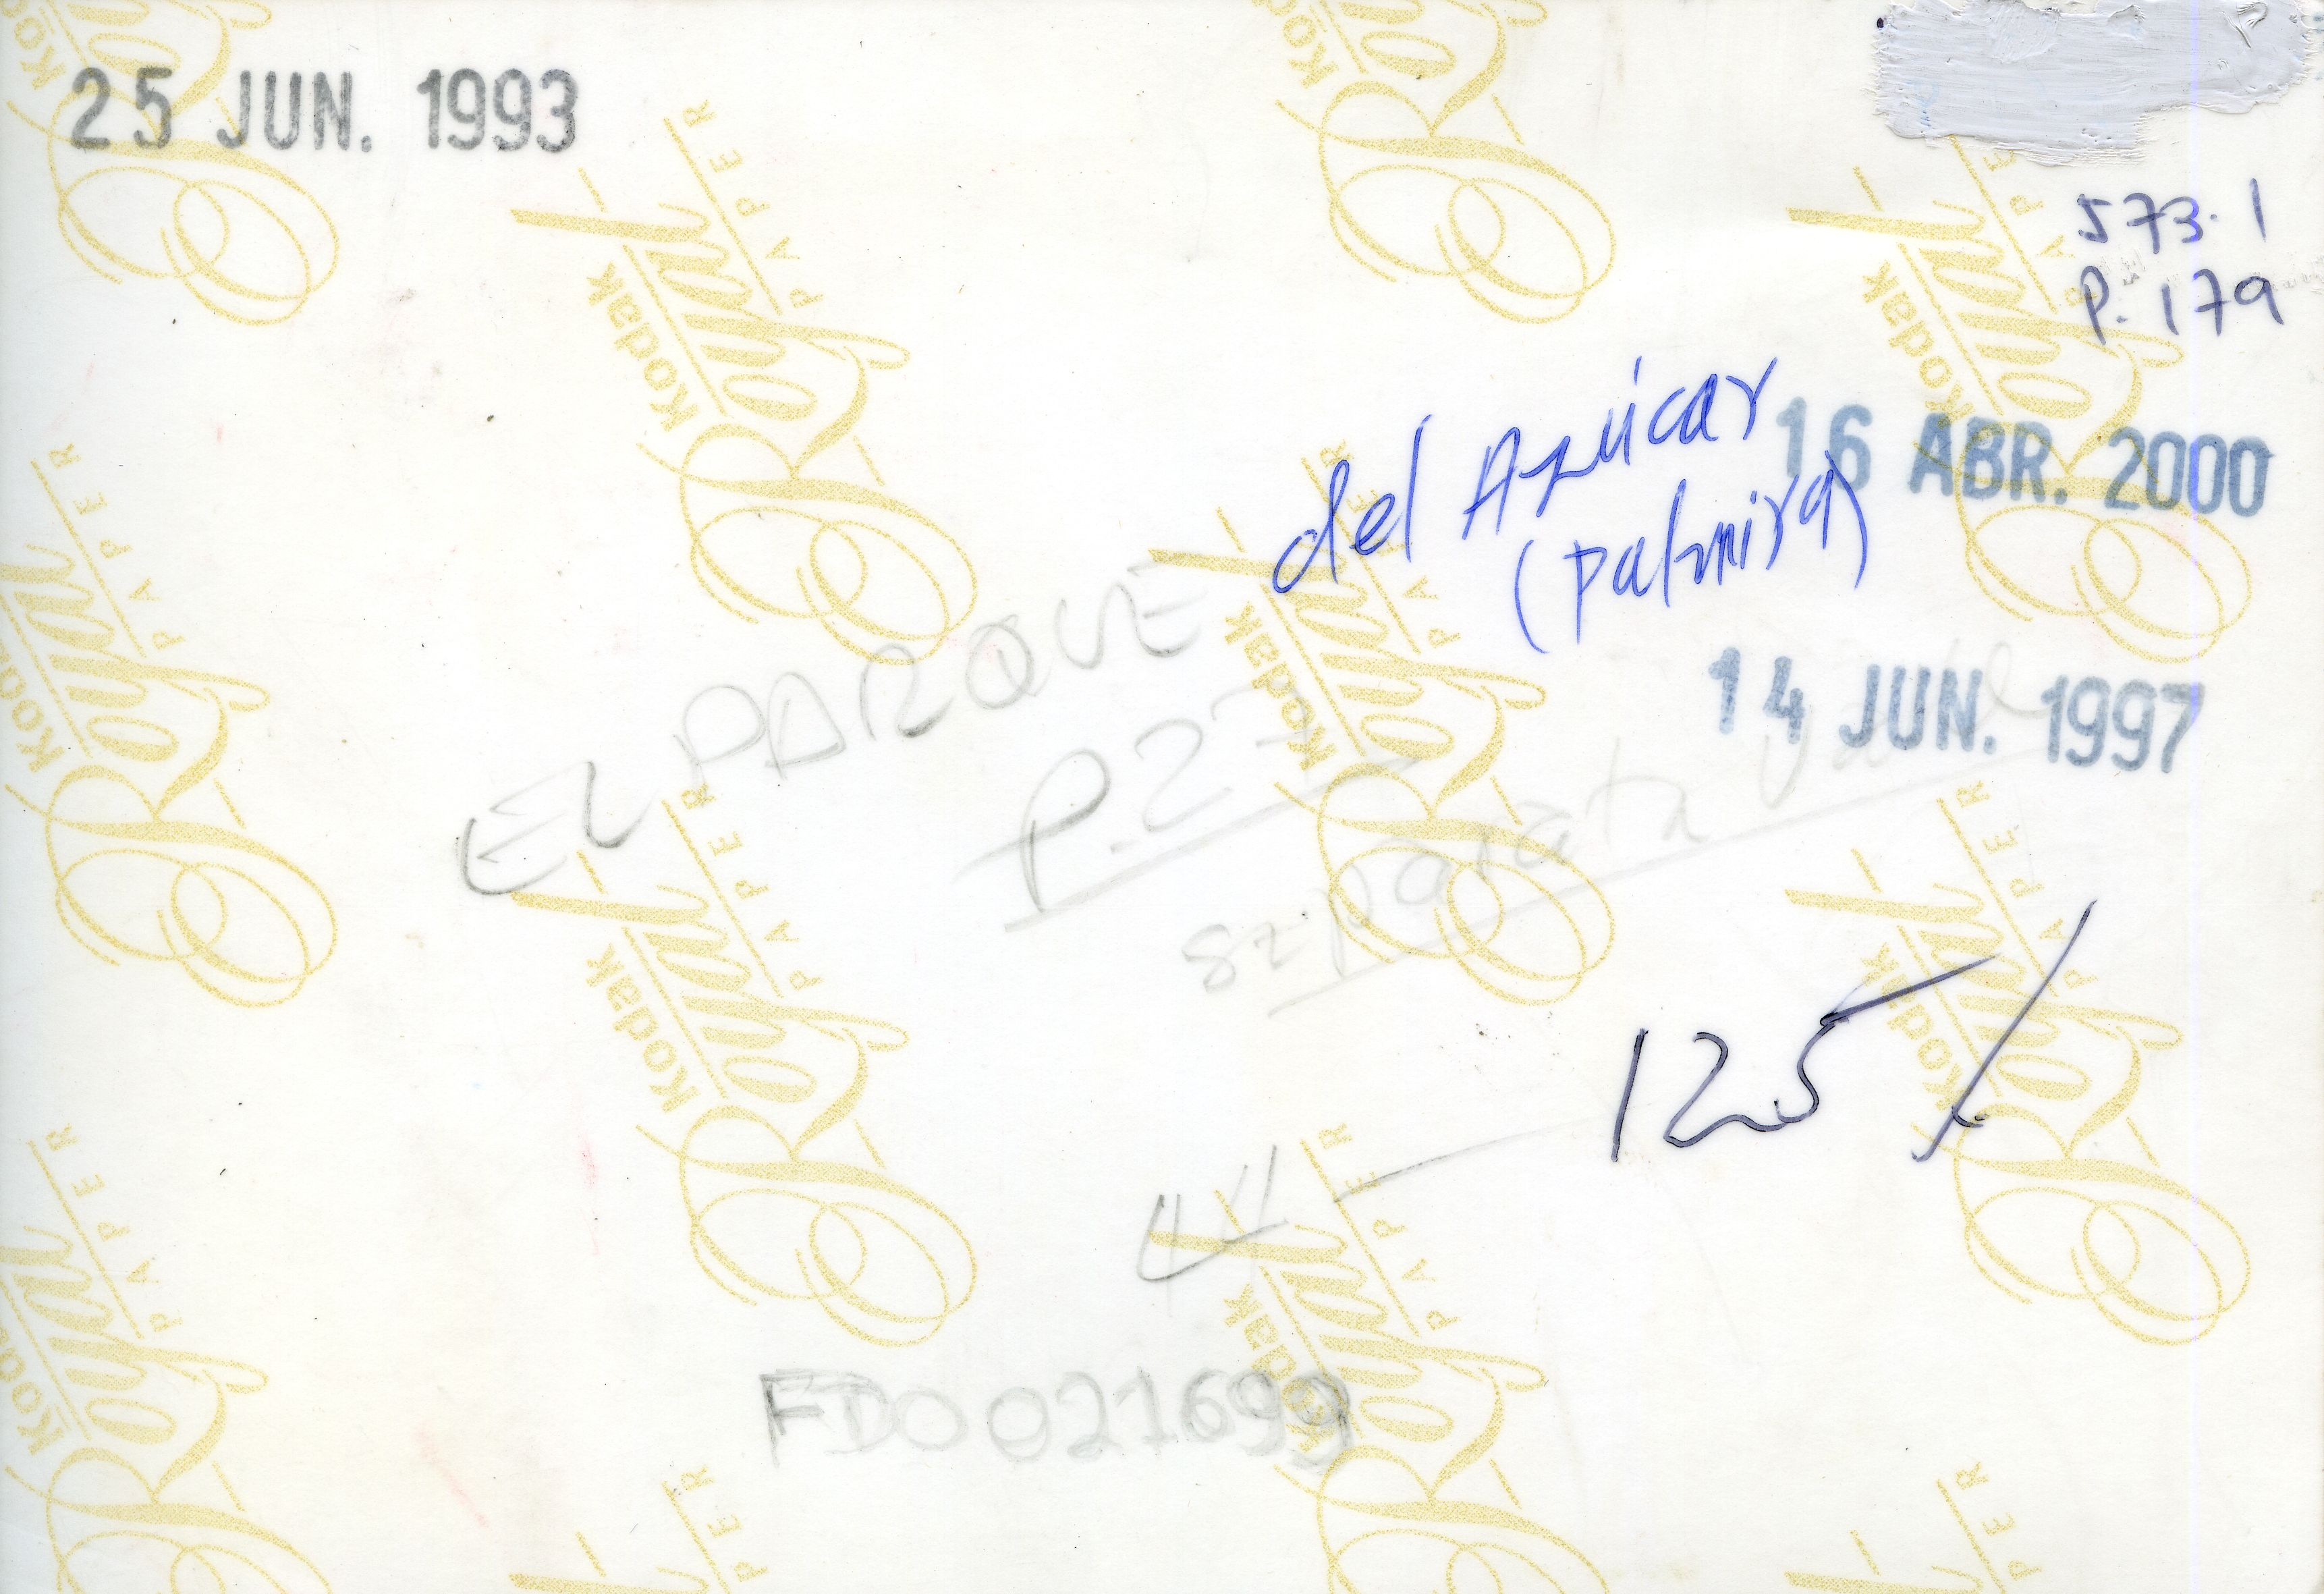 25 JUN. 1993
573.1
P. 179
del Azúcar
(palmira)
16 ABR. 2000
14 JUN. 1997
EL PARQUE
P. 27
separata Valle
125%
FDO021699
Kodak Royal PAPER